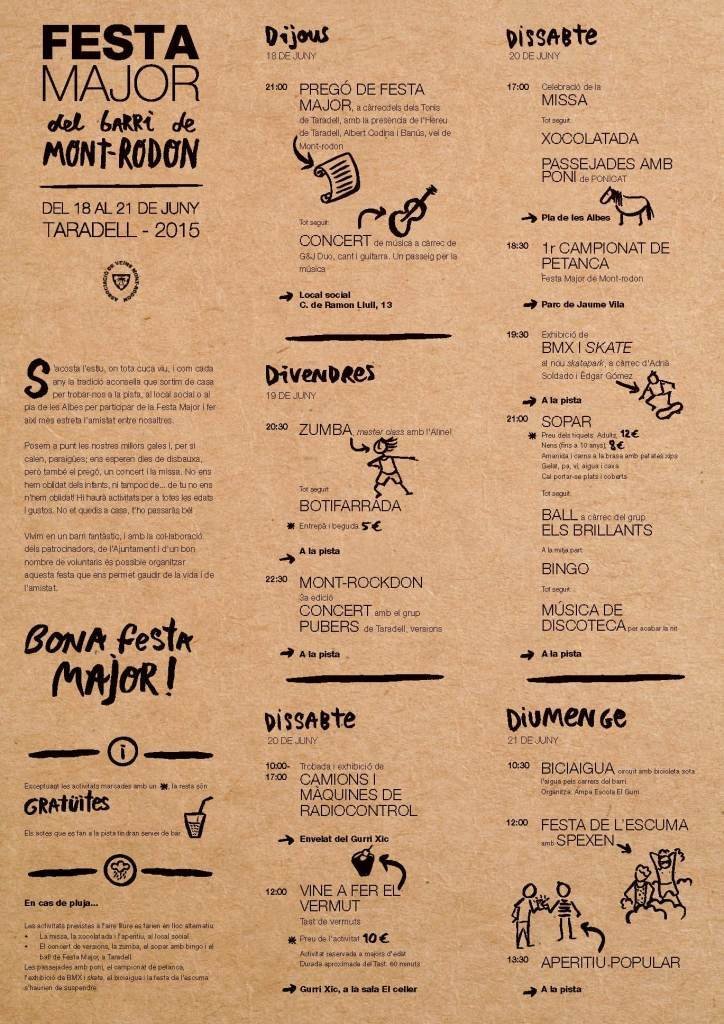 FESTA
MAJOR
del barri de
MONT-RODON
DEL 18 AL 21 DE JUNY
TARADELL - 2015
ASSOCIACIÓ DE VEÏNS MONT-RODON
S'acosta l'estiu, on tota cuca viu, i com cada
any la tradició aconsella que sortim de casa
per trobar-nos a la pista, al local social o al
pla de les Albes per participar de la Festa Major i fer
així més estreta l'amistat entre nosaltres.
Posem a punt les nostres millors gales i, per si
calen, paraigües; ens esperen dies de disbauxa,
però també el pregó, un concert i la missa. No ens
hem oblidat dels infants, ni tampoc de... de tu no ens
n'hem oblidat! Hi haurà activitats per a totes les edats
i gustos. No et quedis a casa, t'ho passaràs bé!
Vivim en un barri fantàstic, i amb la col·laboració
dels patrocinadors, de l'Ajuntament i d'un bon
nombre de voluntaris és possible organitzar
aquesta festa que ens permet gaudir de la vida i de
l'amistat.
BONA festa
MAJOR!
i
Exceptuant les activitats marcades amb un ✱, la resta són
GRATUÏTES
Els actes que es fan a la pista tindran servei de bar.
En cas de pluja...
Les activitats previstes a l'aire lliure es faran en lloc alternatiu:
• La missa, la xocolatada i l'aperitiu, al local social.
• El concert de versions, la zumba, el sopar amb bingo i el
ball de Festa Major, a Taradell.
Les passejades amb poni, el campionat de petanca,
l'exhibició de BMX i skate, el biciaigua i la festa de l'escuma
s'haurien de suspendre.
Dijous
18 DE JUNY
21:00 PREGÓ DE FESTA
MAJOR, a càrrec dels Tonis
de Taradell, amb la presència de l'Hereu
de Taradell, Albert Codina i Banús, veí de
Mont-rodon
Tot seguit:
CONCERT de música a càrrec de
G&J Duo, cant i guitarra. Un passeig per la
música
Local social
C. de Ramon Llull, 13
Divendres
19 DE JUNY
20:30 ZUMBA, master class amb l'Aline!
Tot seguit:
BOTIFARRADA
✱ Entrepà i beguda 5€
A la pista
22:30 MONT-ROCKDON
3a edició
CONCERT amb el grup
PUBERS de Taradell, versions
A la pista
Dissabte
20 DE JUNY
10:00- Trobada i exhibició de
17:00 CAMIONS I
MÀQUINES DE
RADIOCONTROL
Envelat del Gurri Xic
12:00 VINE A FER EL
VERMUT
Tast de vermuts
✱ Preu de l'activitat 10€
Activitat reservada a majors d'edat
Durada aproximada del Tast: 60 minuts
Gurri Xic, a la sala El celler
Dissabte
20 DE JUNY
17:00 Celebració de la
MISSA
Tot seguit:
XOCOLATADA
PASSEJADES AMB
PONI de PONICAT
Pla de les Albes
18:30 1r CAMPIONAT DE
PETANCA
Festa Major de Mont-rodon
Parc de Jaume Vila
19:30 Exhibició de
BMX I SKATE
al nou skatepark, a càrrec d'Adrià
Soldado i Èdgar Gómez
A la pista
21:00 SOPAR
✱ Preu dels tiquets: Adults, 12€
Nens (fins a 10 anys), 8€
Amanida i carns a la brasa amb patates xips
Gelat, pa, vi, aigua i cava
Cal portar-se plats i coberts
Tot seguit:
BALL a càrrec del grup
ELS BRILLANTS
A la mitja part:
BINGO
Tot seguit:
MÚSICA DE
DISCOTECA per acabar la nit
A la pista
Diumenge
21 DE JUNY
10:30 BICIAIGUA circuit amb bicicleta sota
l'aigua pels carrers del barri.
Organitza: Ampa Escola El Gurri
12:00 FESTA DE L'ESCUMA
amb SPEXEN
13:30 APERITIU POPULAR
A la pista